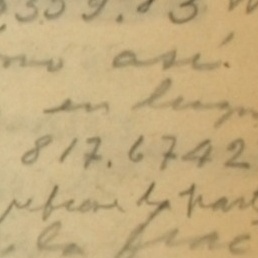 .359.83
mo así.
en lugar
817.6742
refiere la part
la frac